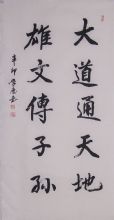 大道通天地
雄文傳子孫
辛卯